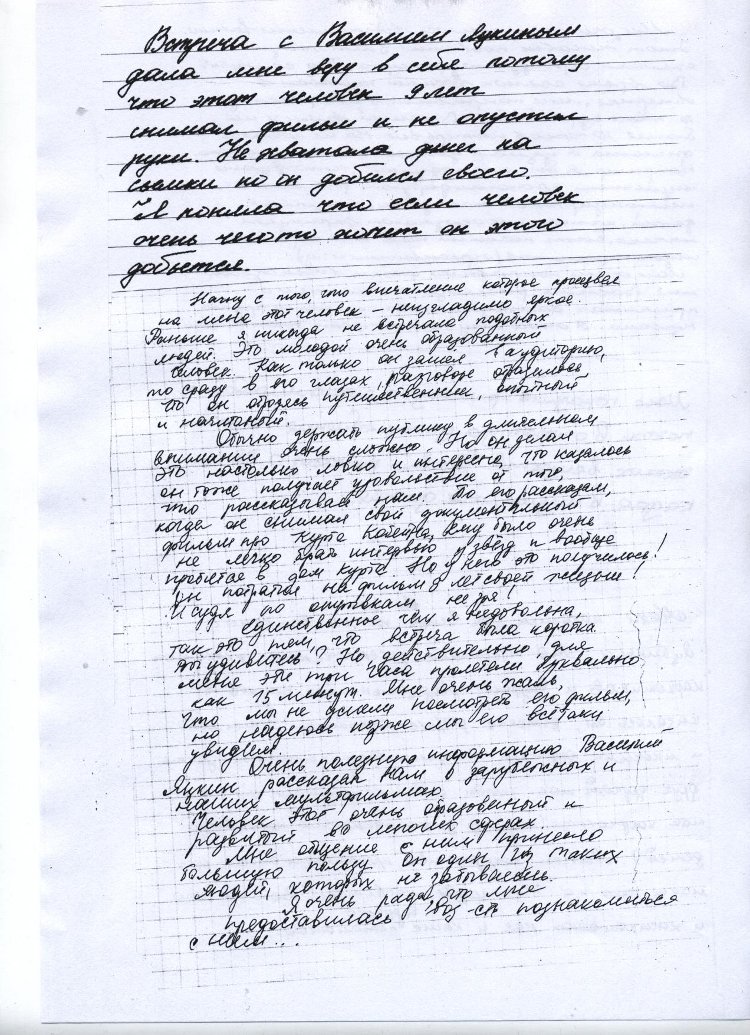 Встреча с Василием Яукиным
дала мне веру в себя потому
что этот человек 9 лет
снимал фильм и не опустил
руки. Не хватало денег на
сьемки но он добился своего.
Я поняла что если человек
очень чего то хочет он этого
добьется.
Начну с того, что впечатление которое произвел
на меня этот человек – неизгладимо яркое.
Раньше я никогда не встречала подобных
людей. Это молодой очень образованный
человек. Как только он зашел в аудиторию,
то сразу в его глазах, разговоре отразилось,
что он отродясь путешественник, опытный
и начитаный.
Обычно держать публику в длительном
внимании очень сложно. Но он делал
это настолько ловко и интересно, что казалось
он тоже получает удовольствие от того,
что рассказывал нам. По его рассказам,
когда он снимал свой документальный
фильм про Курта Кобейна, ему было очень
не легко брать интервью у звёзд и вообще
в дом Курта. Но у него это получилось!
Он потратил на фильм 9 лет своей жизни!
И судя по не зря!
Единственное чем я недовольна,
так это тем, что встреча была коротка.
Вы удивитесь? Но действительно, для
меня эти три часа пролетели буквально
как 15 минут. Мне очень жаль,
что мы не успели посмотреть его фильм,
но надеюсь позже мы его всё таки
увидем.
Очень полезную информацию Василий
Яукин рассказал нам о зарубежных и
наших мультфильмах.
Человек этот очень образованный и
развитый во сферах.
Мне общение с ним принесло
большую пользу. Он один из таких
людей, которых не забываешь.
Я очень рада, что мне
предоставилась воз-сть познакомиться
с ним...